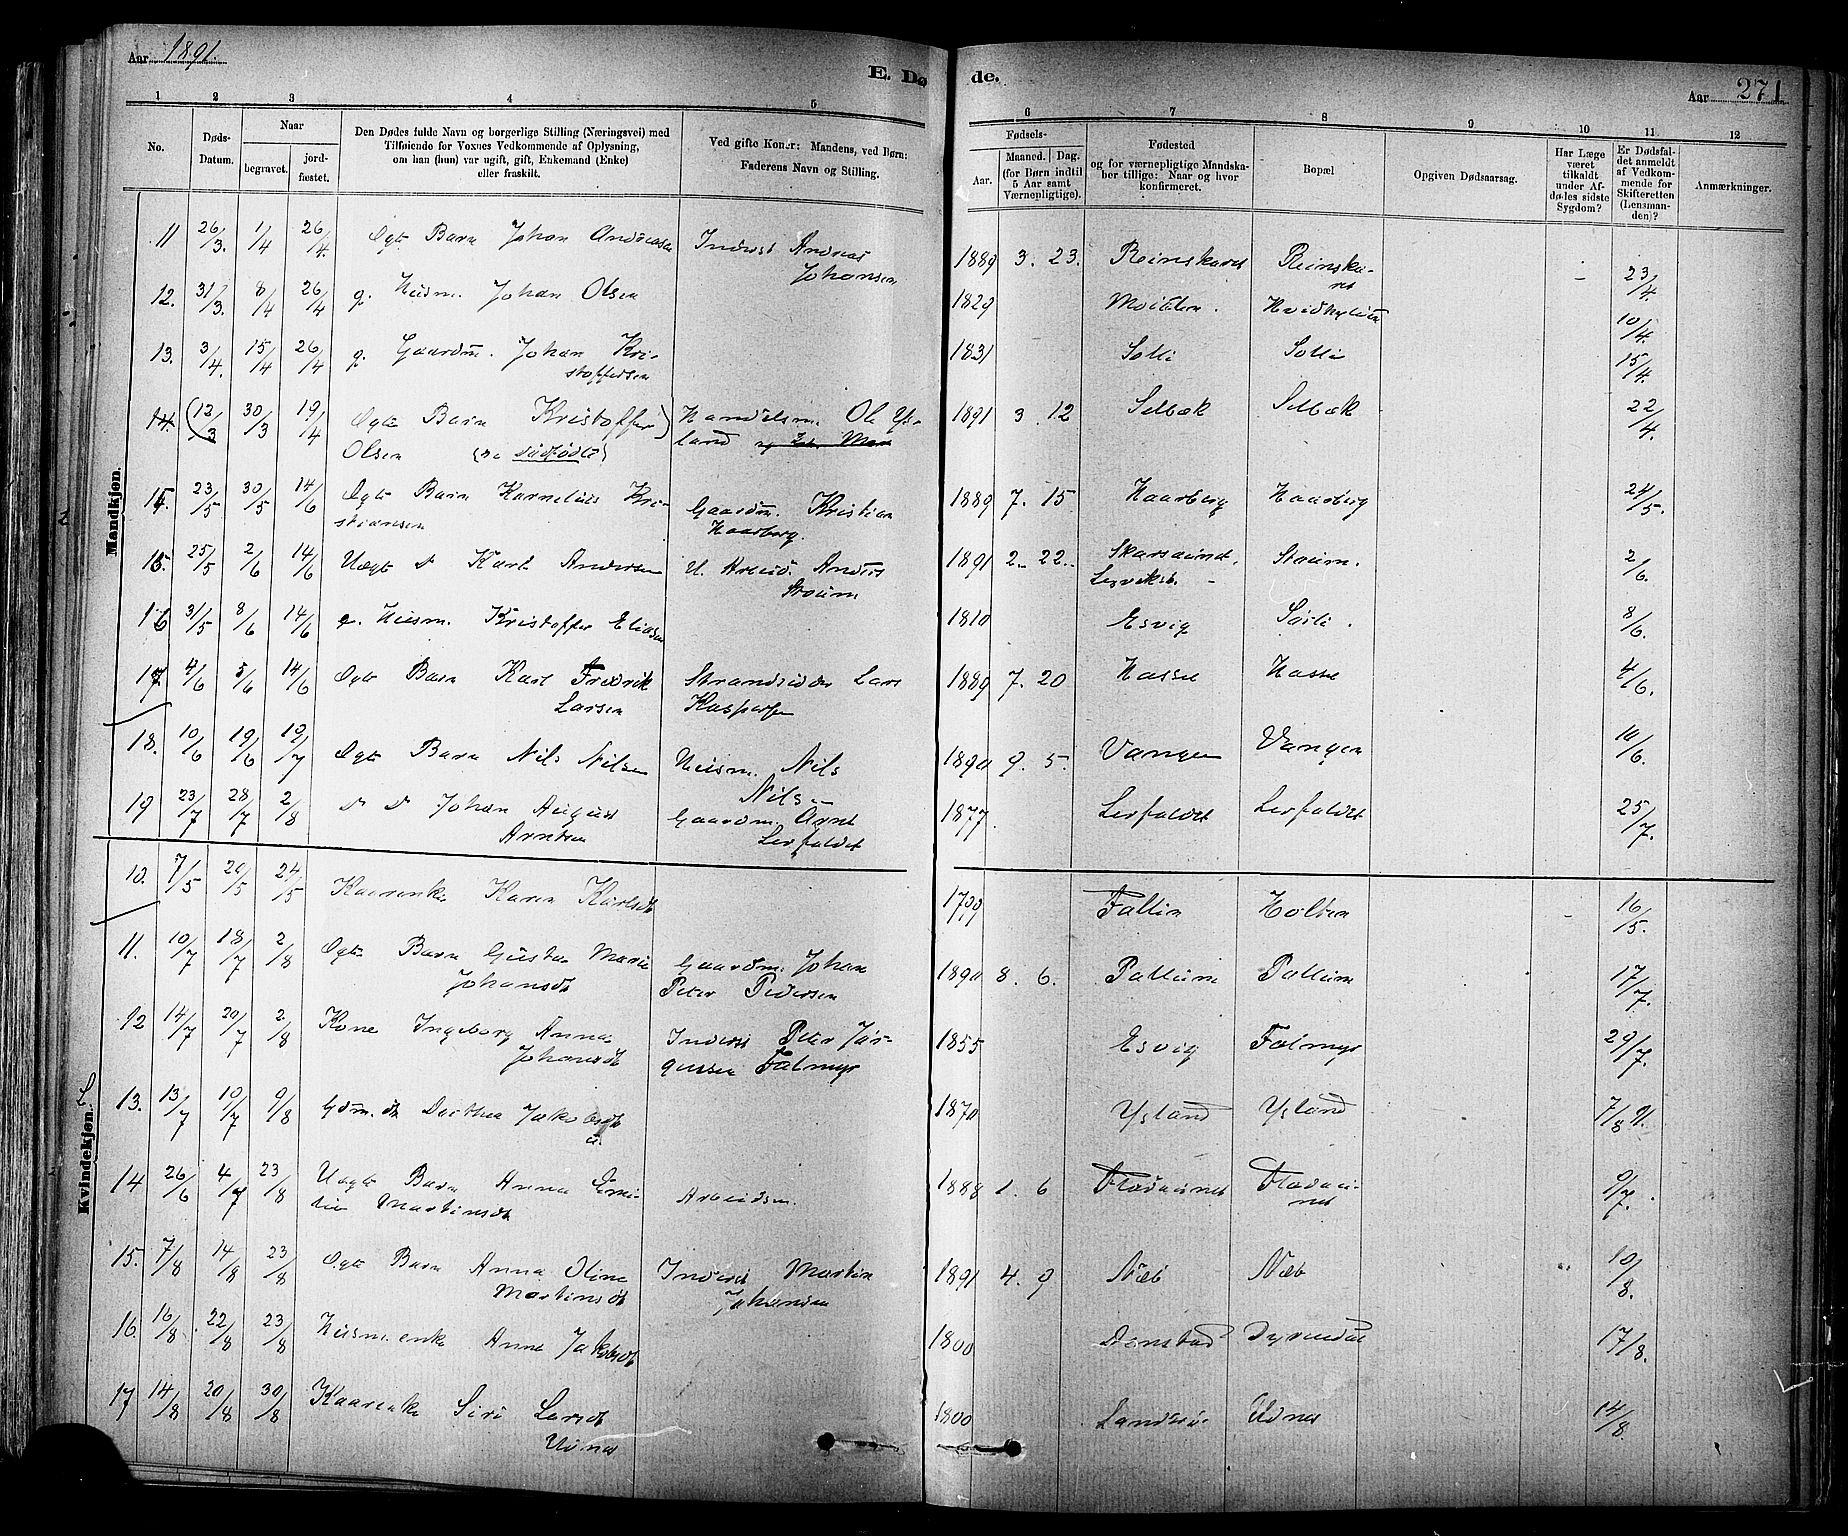 Aar 1891.
E. Dø
de.
Aar 271
1 2 3 4 5
6 7 8 9 10 11 12
No.
Døds-
Datum.
Naar
begravet.
jord-
fæstet.
Den Dødes fulde Navn og borgerlige Stilling (Næringsvei) med
Tilføiende for Voxnes Vedkommende af Oplysning,
om han (hun) var ugift, gift, Enkemand (Enke)
eller fraskilt.
Ved gifte Koner: Mandens, ved Børn:
Faderens Navn og Stilling.
Fødsels-
Aar.
Maaned. Dag.
(for Børn indtil
5 Aar samt
Værnepligtige).
Fødested
og for værnepligtige Mandska-
ber tillige: Naar og hvor
konfirmeret.
Bopæl
Opgiven Dødsaarsag.
Har Læge
været
tilkaldt
under Af-
dødes sidste
Sygdom?
Er Dødsfal-
det anmeldt
af Vedkom-
mende for
Skifteretten
(Lensman-
den)?
Anmærkninger.
Mandkjøn.
11 26/3. 1/4 26/4. Ægte Barn Johan Andreasen Inderst Andreas
Johansen 1889 3. 23. Reinskaret Reinska-
ret - 23/4.
12. 31/3. 8/4 26/4 g. Husm. Johan Olsen 1829 10/4.
13. 3/4. 15/4 26/4 g. Gaardm. Johan Kri-
stoffersen 1831 Solli Solli 15/4.
14. (12/3 30/3 19/4 Ægte Barn Kristoffer) Handelsm. Ole Ys-
Olsen (se dødfødte) land og 1891 3. 12 Selbæk Selbæk 22/4.
15. 23/5 30/5 14/6 Ægte Barn Kornelius Kri-
stiansen Gaardm. Kristian
Haarberg. 1889 7. 15 Haarberg Haarberg 24/5.
15. 25/5 2/6 14/6 Uægte d Karl Andersen U. Arbeid. Anders
Straum 1891 2. 22. Skarsaunet, Straum. 2/6.
16 31/5 8/6 14/6 g. Husm. Kristoffer Eliasen 1810 Esvig Sørli. 8/6.
17 4/6 5/6 14/6 Ægte Barn Karl Fredrik Strandsidder Lars
Larsen Kaspersen 1889 7. 20 Hasse Hasse 4/6.
18. 10/6 19/6 19/7 Ægte Barn Nils Nilsen Husm. Nils
Nilsen 1890 9. 5. Vangen Vangen 10/6.
19 23/7 28/7 2/8 d d Johan August
Arntsen Gaardm. Arnt
Lerfaldet 1877. Lerfaldet Lerfaldet 25/7.
Kvindekjøn.
10. 7/5 20/5 24/5 Kaarenke Karen Karlsdt 1799 Fallin Holten 16/5.
11. 10/7 18/7 2/8 Ægte Barn Gusta Marie
Johansdt Gaardm. Johan
Peter Pedersen 1890 8. 6. Pallum Pallum 17/7.
12 14/7 20/7 2/8 Kone Ingeborg Anna
Johansdt Inderst Peter Jør-
gensen Falmyr 1855 Esvig Falmyr 29/7.
13. 13/7 10/7 9/8 Gdm. dt Dorthea Jakobsdt
u. 1870 Ysland Ysland 7/8 91.
14 26/6 4/7 23/8 Uægte Barn Anna Emi-
lie Martinsdt Arbeidsm. 1888 1. 6 Flødaunet Flødau-
net 9/7.
15. 7/8 14/8 23/8 Ægte Barn Anna Oline
Martinsdt Inderst Martin
Johansen 1891 4. 9 Næb Næb 10/8.
16. 16/8 22/8 23/8 Husm.enke Anne Jakobsdt 1800 Dyrendal 17/8.
17 14/8 20/8 30/8 Kaarenke Siri Larsdt
Udnæs 1800 Udnæs 14/8.